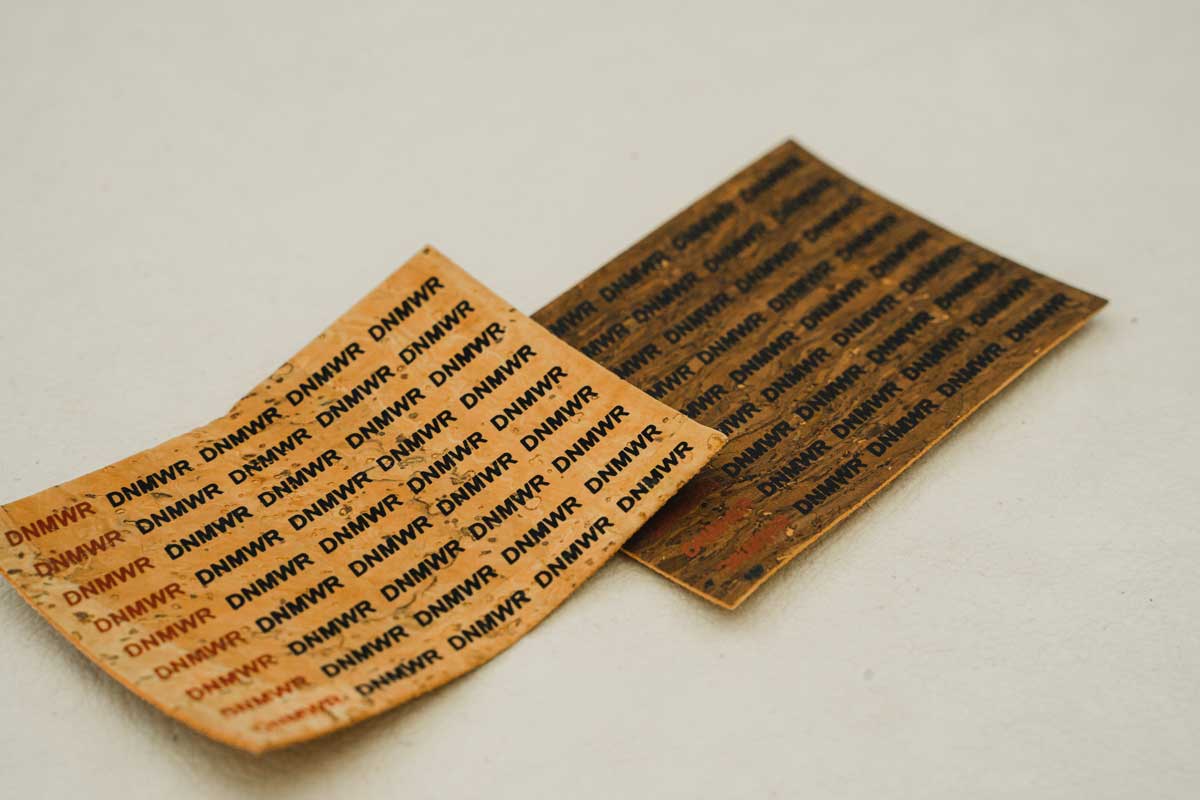 DNMWR DNMWR DNMWR DNMWR DNMWR
DNMWR DNMWR DNMWR DNMWR DNMWR
DNMWR DNMWR DNMWR DNMWR DNMWR
DNMWR DNMWR DNMWR DNMWR DNMWR
DNMWR DNMWR DNMWR DNMWR DNMWR
DNMWR DNMWR DNMWR DNMWR DNMWR
DNMWR DNMWR DNMWR DNMWR DNMWR
DNMWR DNMWR DNMWR DNMWR DNMWR
DNMWR DNMWR DNMWR DNMWR DNMWR
DNMWR DNMWR DNMWR
DNMWR DNMWR DNMWR
DNMWR DNMWR DNMWR
DNMWR DNMWR DNMWR
DNMWR DNMWR DNMWR
DNMWR DNMWR DNMWR
DNMWR DNMWR DNMWR DNMWR
DNMWR DNMWR DNMWR DNMWR
DNMWR DNMWR DNMWR DNMWR